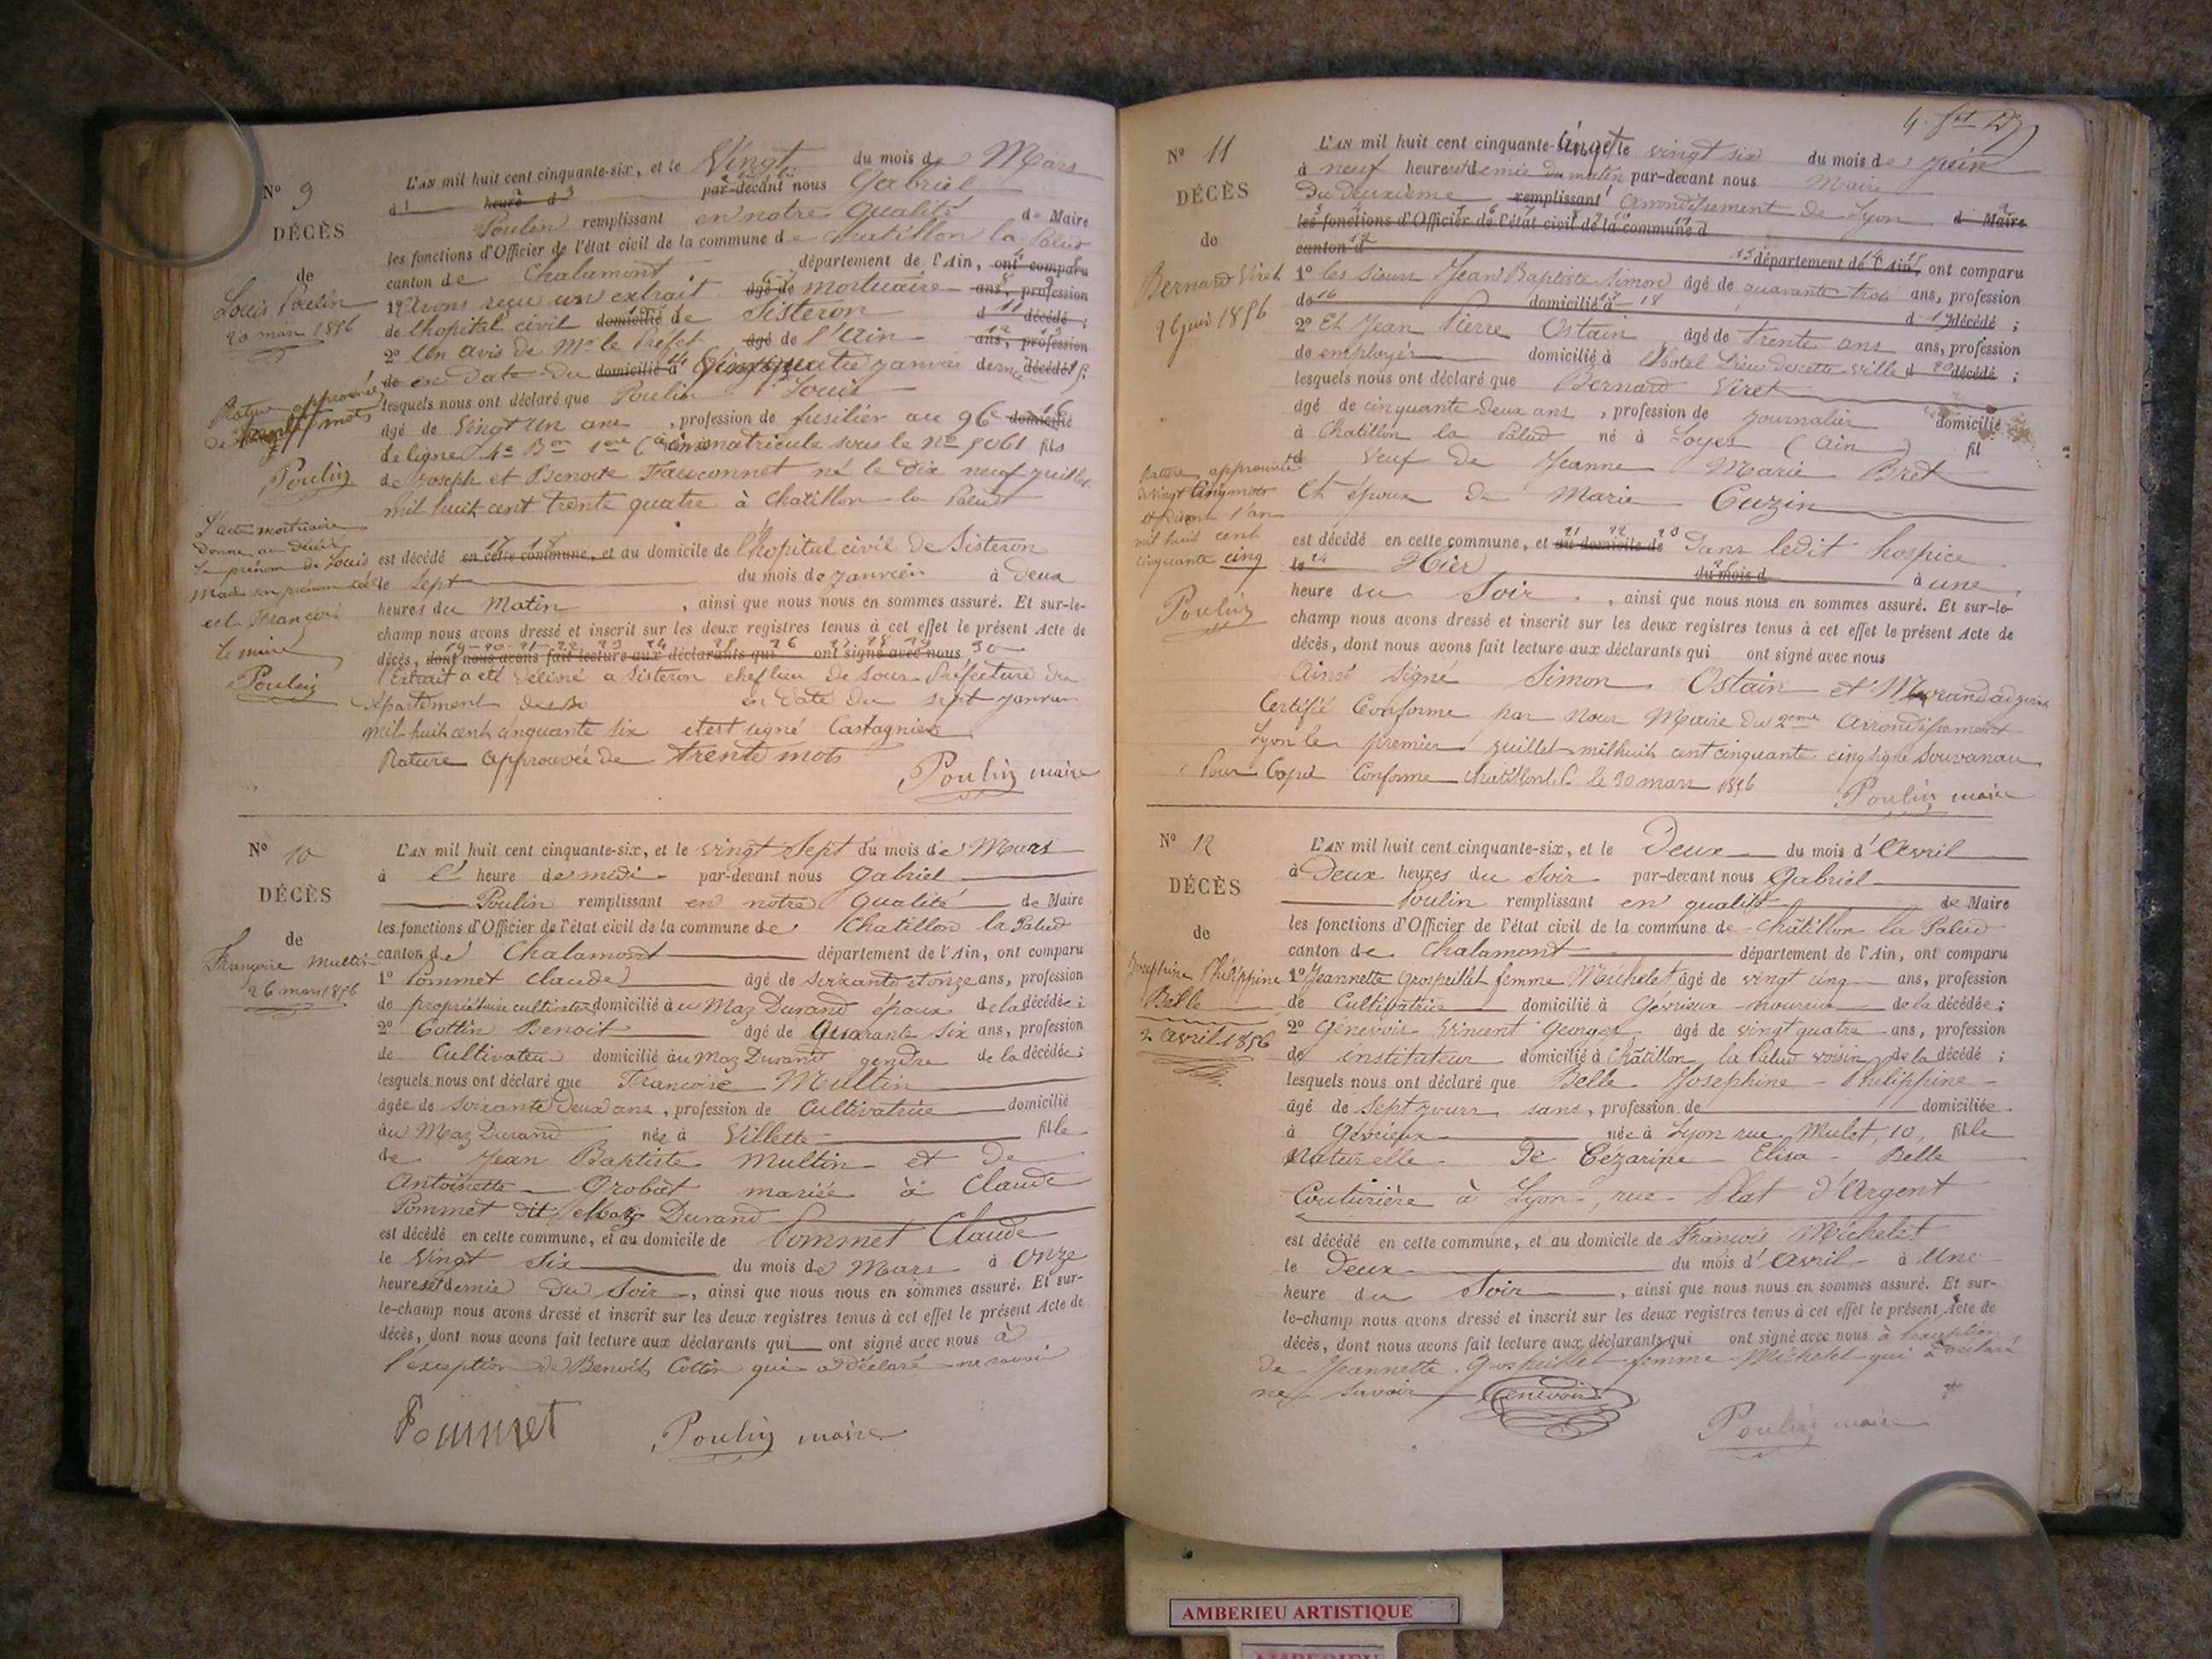 N° 9
DÉCÈS
de
Louis Poulin
20 mars 1856
Rature approuvée
de trente mots
Poulin
L'acte mortuaire
donne au décédé
le prénom de Louis
mais son prénom réel
est François
le maire
Poulin
L'AN mil huit cent cinquante-six, et le Vingt du mois de Mars
d heure d par-devant nous Gabriel
Poulin remplissant en notre qualité de Maire
les fonctions d'Officier de l'état civil de la commune de Chatillon la Palud
canton de Chalamont département de l'Ain, ont comparu
1° Avons reçu un extrait âgé de mortuaire ans, profession
de l'hopital civil domicilié de Sisteron d décédé ;
2° Un avis de Mr le Préfet âgé de l'Ain ans, profession
de en date du domicilié à vingt quatre janvier dernier décédé ;
lesquels nous ont déclaré que Poulin Louis
âgé de Vingt Un ans , profession de fusilier au 96e domicilié
de ligne 4e Bon 1ere Cie immatriculé sous le N° 5061 fils
de Joseph et Benoite Fauconnet né le dix neuf juillet
mil huit cent trente quatre à Chatillon la Palud
est décédé en cette commune, et au domicile de l'hopital civil de Sisteron
le Sept du mois de Janvier à deux
heures du Matin , ainsi que nous nous en sommes assuré. Et sur-le-
champ nous avons dressé et inscrit sur les deux registres tenus à cet effet le présent Acte de
décès, dont nous avons fait lecture aux déclarants qui ont signé avec nous
l'Extrait a été délivré a Sisteron chef lieu de Sous Préfecture du
département des en date du sept janvier
mil huit cent cinquante six et est signé Castagnier
Rature approuvée de trente mots
Poulin maire
N° 10
DÉCÈS
de
Françoise Multin
26 mars 1856
L'AN mil huit cent cinquante-six, et le vingt Sept du mois de Mars
à l' heure de midi par-devant nous Gabriel
Poulin remplissant en notre qualité de Maire
les fonctions d'Officier de l'état civil de la commune de Chatillon la Palud
canton de Chalamont département de l'Ain, ont comparu
1° Pommet Claude âgé de Soixante et onze ans, profession
de propriétaire cultivateur domicilié au Maz Durand époux de la décédée ;
2° Cottin Benoit âgé de Quarante six ans, profession
de Cultivateur domicilié au Maz Durand gendre de la décédée ;
lesquels nous ont déclaré que Françoise Multin
âgée de Soixante Deux ans , profession de Cultivatrice domicilié
au Maz Durand née à Villette fille
de Jean Baptiste Multin et de
Antoinette Grobat mariée à Claude
Pommet dit Maz Durand
est décédé en cette commune, et au domicile de Pommet Claude
le Vingt Six du mois de Mars à Onze
heures et demie du Soir , ainsi que nous nous en sommes assuré. Et sur-
le-champ nous avons dressé et inscrit sur les deux registres tenus à cet effet le présent Acte de
décès, dont nous avons fait lecture aux déclarants qui ont signé avec nous à
l'exception de Benoit Cottin qui a déclaré ne savoir
Pommet Poulin maire
N° 11
DÉCÈS
de
Bernard Viret
26 juin 1856
Rature approuvée
de vingt cinq mots
et disant l'an
mil huit cent
cinquante cinq
Poulin
L'AN mil huit cent cinquante-cinq et le vingt six du mois de juin
à neuf heures et demie du matin par-devant nous Maire
du deuxième remplissant arrondissement de Lyon d Maire
les fonctions d'Officier de l'état civil de la commune d
canton d département de l'Ain, ont comparu
1° les sieurs Jean Baptiste Simon âgé de quarante trois ans, profession
de domicilié à d décédé ;
2° Et Jean Pierre Ostain âgé de Trente ans ans, profession
de employés domicilié à l'Hotel Dieu de cette ville d décédé ;
lesquels nous ont déclaré que Bernard Viret
âgé de cinquante deux ans , profession de journalier domicilié
à Chatillon la Palud né à Loyes (Ain) fil
d Veuf de Jeanne Marie Bret
Et époux de Marie Cuzin
est décédé en cette commune, et au domicile de Dans ledit hospice
le Hier du mois d à une
heure du Soir , ainsi que nous nous en sommes assuré. Et sur-le-
champ nous avons dressé et inscrit sur les deux registres tenus à cet effet le présent Acte de
décès, dont nous avons fait lecture aux déclarants qui ont signé avec nous
Ainsi signé Simon Ostain et Morand adjoint
Certifié Conforme par Nous Maire du 2eme arrondissement
Lyon le premier juillet mil huit cent cinquante cinq signé Souvanau
Pour Copie Conforme Chatillon l. P. le 30 mars 1856
Poulin maire
N° 12
DÉCÈS
de
Josephine Philippine
Belle
2 avril 1856
L'AN mil huit cent cinquante-six, et le Deux du mois d'Avril
à Deux heures du Soir par-devant nous Gabriel
Poulin remplissant en qualité de Maire
les fonctions d'Officier de l'état civil de la commune de Châtillon la Palud
canton de Chalamont département de l'Ain, ont comparu
1° Jeannette Grospeillet femme Michelet âgé de vingt cinq ans, profession
de Cultivatrice domicilié à Gévrieux nourrice de la décédée ;
2° Genevois Vincent Georges âgé de vingt quatre ans, profession
de instituteur domicilié à Châtillon la Palud voisin de la décédé ;
lesquels nous ont déclaré que Belle Josephine Philippine
âgé de Sept jours sans, profession de domiciliée
à Gévrieux née à Lyon rue Mulet, 10, fille
Naturelle de Cézarine Elisa Belle
Couturière à Lyon, rue Plat d'Argent
est décédé en cette commune, et au domicile de François Michelet
le Deux du mois d'Avril à Une
heure du Soir , ainsi que nous nous en sommes assuré. Et sur-
le-champ nous avons dressé et inscrit sur les deux registres tenus à cet effet le présent Acte de
décès, dont nous avons fait lecture aux déclarants qui ont signé avec nous à l'exception
de Jeannette Grospeillet femme Michelet qui a déclaré
ne savoir Genevois
Poulin maire
AMBERIEU ARTISTIQUE
AMBERIEU